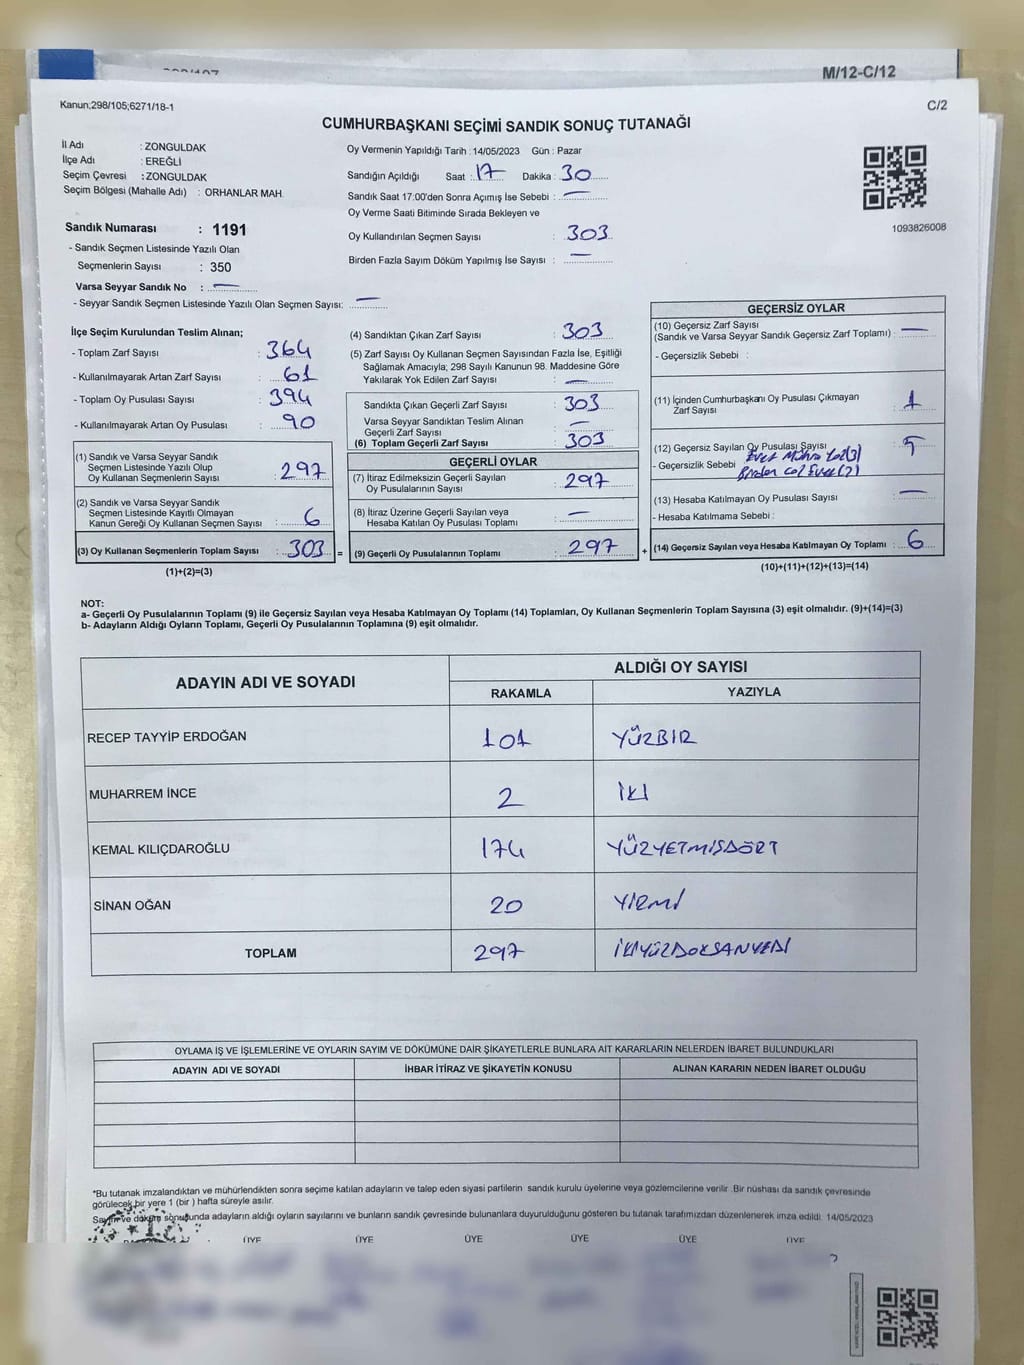 M/12-C/12
Kanun;298/105;6271/18-1
C/2
CUMHURBAŞKANI SEÇİMİ SANDIK SONUÇ TUTANAĞI
İl Adı : ZONGULDAK
İlçe Adı : EREĞLİ
Seçim Çevresi : ZONGULDAK
Seçim Bölgesi (Mahalle Adı) : ORHANLAR MAH.
Sandık Numarası : 1191
- Sandık Seçmen Listesinde Yazılı Olan
Seçmenlerin Sayısı : 350
Varsa Seyyar Sandık No : —
- Seyyar Sandık Seçmen Listesinde Yazılı Olan Seçmen Sayısı: —
Oy Vermenin Yapıldığı Tarih : 14/05/2023 Gün : Pazar
Sandığın Açıldığı Saat : 17 Dakika : 30
Sandık Saat 17:00'den Sonra Açımış İse Sebebi : —
Oy Verme Saati Bitiminde Sırada Bekleyen ve
Oy Kullandırılan Seçmen Sayısı : 303
Birden Fazla Sayım Döküm Yapılmış İse Sayısı : —
1093826008
İlçe Seçim Kurulundan Teslim Alınan;
- Toplam Zarf Sayısı : 364
- Kullanılmayarak Artan Zarf Sayısı : 61
- Toplam Oy Pusulası Sayısı : 394
- Kullanılmayarak Artan Oy Pusulası : 90
(1) Sandık ve Varsa Seyyar Sandık
Seçmen Listesinde Yazılı Olup
Oy Kullanan Seçmenlerin Sayısı : 297
(2) Sandık ve Varsa Seyyar Sandık
Seçmen Listesinde Kayıtlı Olmayan
Kanun Gereği Oy Kullanan Seçmen Sayısı : 6
(3) Oy Kullanan Seçmenlerin Toplam Sayısı : 303 =
(1)+(2)=(3)
(4) Sandıktan Çıkan Zarf Sayısı : 303
(5) Zarf Sayısı Oy Kullanan Seçmen Sayısından Fazla İse, Eşitliği
Sağlamak Amacıyla; 298 Sayılı Kanunun 98. Maddesine Göre
Yakılarak Yok Edilen Zarf Sayısı : —
Sandıkta Çıkan Geçerli Zarf Sayısı : 303
Varsa Seyyar Sandıktan Teslim Alınan
Geçerli Zarf Sayısı : —
(6) Toplam Geçerli Zarf Sayısı : 303
GEÇERLİ OYLAR
(7) İtiraz Edilmeksizin Geçerli Sayılan
Oy Pusulalarının Sayısı : 297
(8) İtiraz Üzerine Geçerli Sayılan veya
Hesaba Katılan Oy Pusulası Toplamı : —
(9) Geçerli Oy Pusulalarının Toplamı : 297 +
GEÇERSİZ OYLAR
(10) Geçersiz Zarf Sayısı
(Sandık ve Varsa Seyyar Sandık Geçersiz Zarf Toplamı) : —
- Geçersizlik Sebebi :
(11) İçinden Cumhurbaşkanı Oy Pusulası Çıkmayan
Zarf Sayısı : 1
(12) Geçersiz Sayılan Oy Pusulası Sayısı : 5
- Geçersizlik Sebebi
(13) Hesaba Katılmayan Oy Pusulası Sayısı : —
- Hesaba Katılmama Sebebi :
(14) Geçersiz Sayılan veya Hesaba Katılmayan Oy Toplamı : 6
(10)+(11)+(12)+(13)=(14)
NOT:
a- Geçerli Oy Pusulalarının Toplamı (9) ile Geçersiz Sayılan veya Hesaba Katılmayan Oy Toplamı (14) Toplamları, Oy Kullanan Seçmenlerin Toplam Sayısına (3) eşit olmalıdır. (9)+(14)=(3)
b- Adayların Aldığı Oyların Toplamı, Geçerli Oy Pusulalarının Toplamına (9) eşit olmalıdır.
ADAYIN ADI VE SOYADI ALDIĞI OY SAYISI
RAKAMLA YAZIYLA
RECEP TAYYİP ERDOĞAN 101 YÜZBİR
MUHARREM İNCE 2 İKİ
KEMAL KILIÇDAROĞLU 174 YÜZYETMİŞDÖRT
SİNAN OĞAN 20 YİRMİ
TOPLAM 297 İKİYÜZDOKSANYEDİ
OYLAMA İŞ VE İŞLEMLERİNE VE OYLARIN SAYIM VE DÖKÜMÜNE DAİR ŞİKAYETLERLE BUNLARA AİT KARARLARIN NELERDEN İBARET BULUNDUKLARI
ADAYIN ADI VE SOYADI İHBAR İTİRAZ VE ŞİKAYETİN KONUSU ALINAN KARARIN NEDEN İBARET OLDUĞU
*Bu tutanak imzalandıktan ve mühürlendikten sonra seçime katılan adayların ve talep eden siyasi partilerin sandık kurulu üyelerine veya gözlemcilerine verilir. Bir nüshası da sandık çevresinde
görülecek bir yere 1 (bir ) hafta süreyle asılır.
Sayım ve döküm sonucunda adayların aldığı oyların sayılarını ve bunların sandık çevresinde bulunanlara duyurulduğunu gösteren bu tutanak tarafımızdan düzenlenerek imza edildi. 14/05/2023
ÜYE ÜYE ÜYE ÜYE ÜYE ÜYE